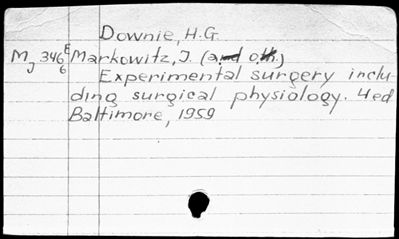 Downie, H.G.
Mj 346 E 6 Markowitz, J. (and oth.)
Experimental surgery inclu-
ding surgical physiology. 4 ed
Baltimore, 1959